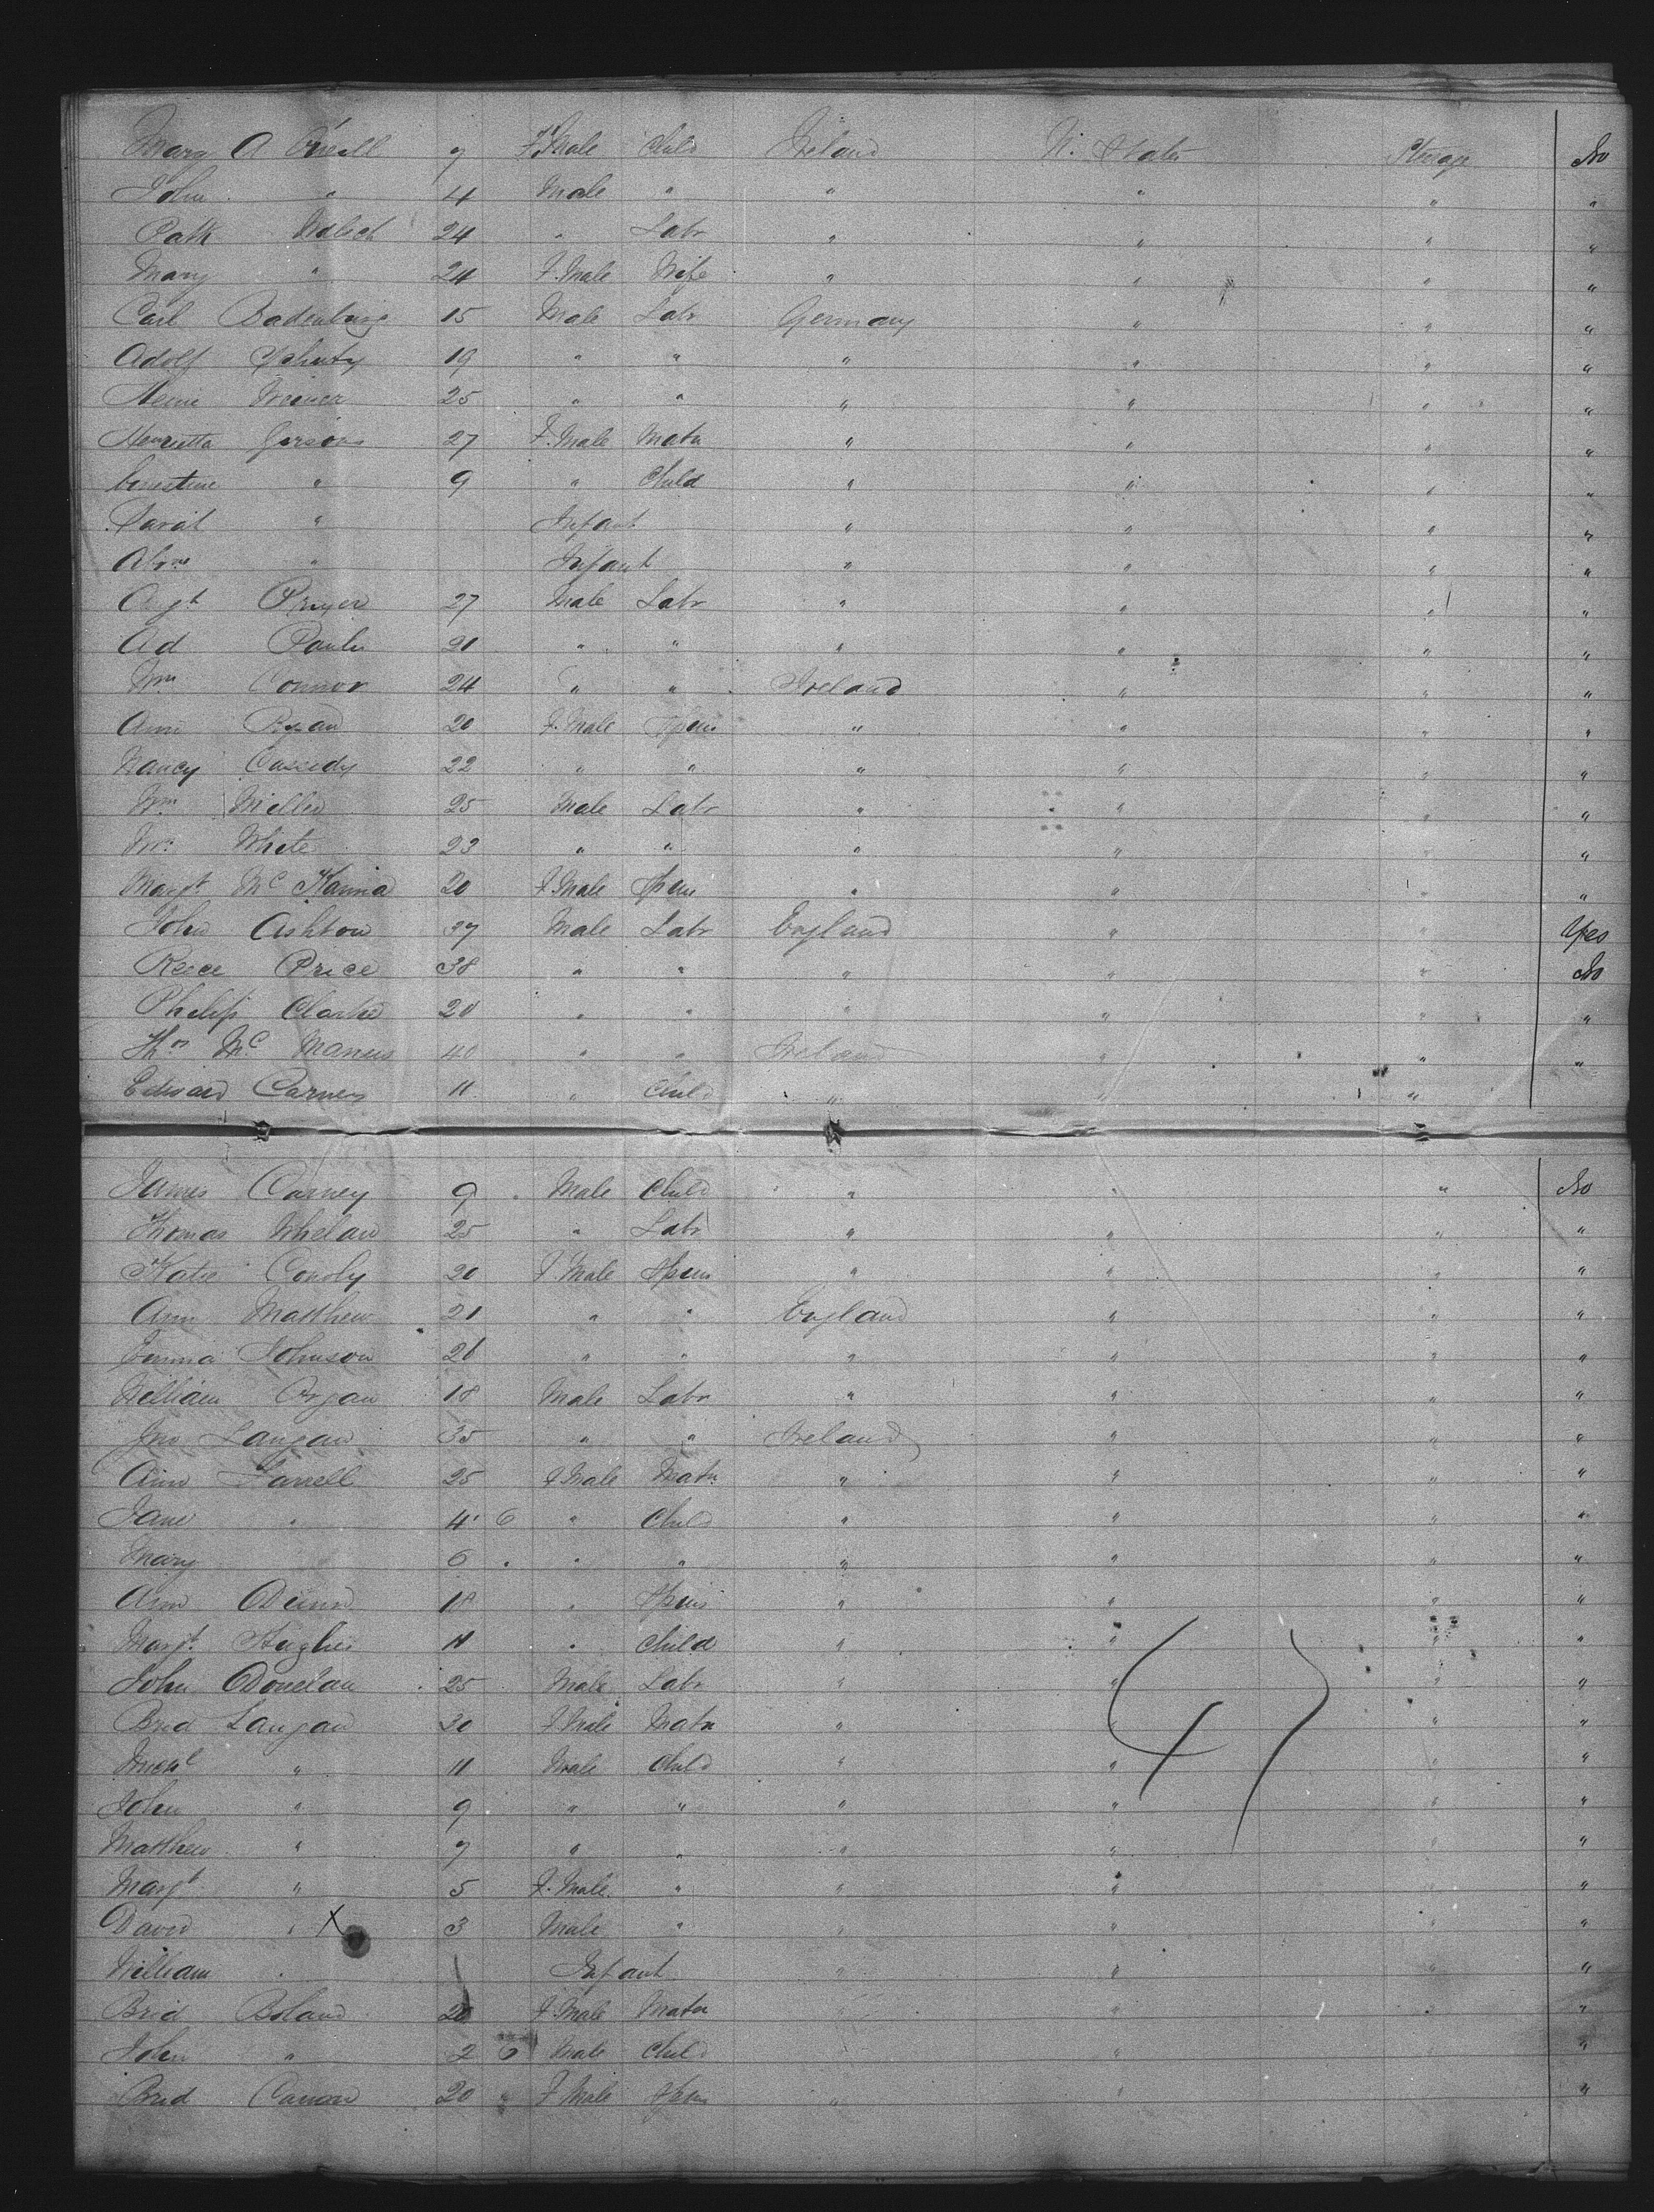 Mary A O'neill 7 F. Male Child Ireland U. States Steerage No
John " 4 Male " " " " "
Patk Walsh 24 " Labr " " " "
Mary " 24 F. Male Wife " " " "
Carl Badenburg 15 Male Labr Germany " " "
Adolf 19 " " " " " "
Heini Weiner 25 " " " " " "
Henrietta Gersons 27 F. Male Matn " " " "
Ernestine " 9 " Child " " " "
Sarah " Infant " " " "
Abrm " Infant " " " "
Augt Pruyer 27 Male Labr " " " "
Ad Pauli 21 " " " " " "
Wm Connor 24 " " Ireland " " "
Ann Ryan 20 F. Male Spin " " " "
Nancy Cassidy 22 " " " " " "
Wm Miller 25 Male Labr " " " "
Wm White 23 " " " " " "
Margt Mc Kanna 20 F. Male Spin " " " "
John Ashton 37 Male Labr England " " Yes
Reece Price 38 " " " " " No
Philip Clarke 20 " " " " " "
Thos Mc Manus 40 " " Ireland " " "
Edward Carney 11 " Child " " "
James Carney 9 Male Child " " " No
Thomas Whelan 25 " Labr " " " "
Katie Conoly 20 F. Male Spin " " " "
Ann Matthew 21 " " England " " "
Emma Johnson 26 " " " " " "
William Organ 18 Male Labr " " " "
Jno Langan 35 " " Ireland " " "
Ann Farrell 25 F. Male Matn " " " "
Jane " 4 6 " Child " " " "
Mary 6 " " " " " "
Ann Dunn 18 " Spin " " " "
Margt Hughes 11 " Child " " " "
John Donelan 25 Male Labr " " " "
Brid Langan 30 F. Male Matn " " " "
Michl " 11 Male Child " " " "
John " 9 " " " " " "
Matthew " 7 " " " " " "
Margt " 5 F. Male " " " " "
David " X 3 Male " " " " "
William " Infant " " " "
Brid Boland 20 F. Male Matn " " "
John " 2 6 Male Child " "
Brid Canon 20 " F. Male Spin " " "
47